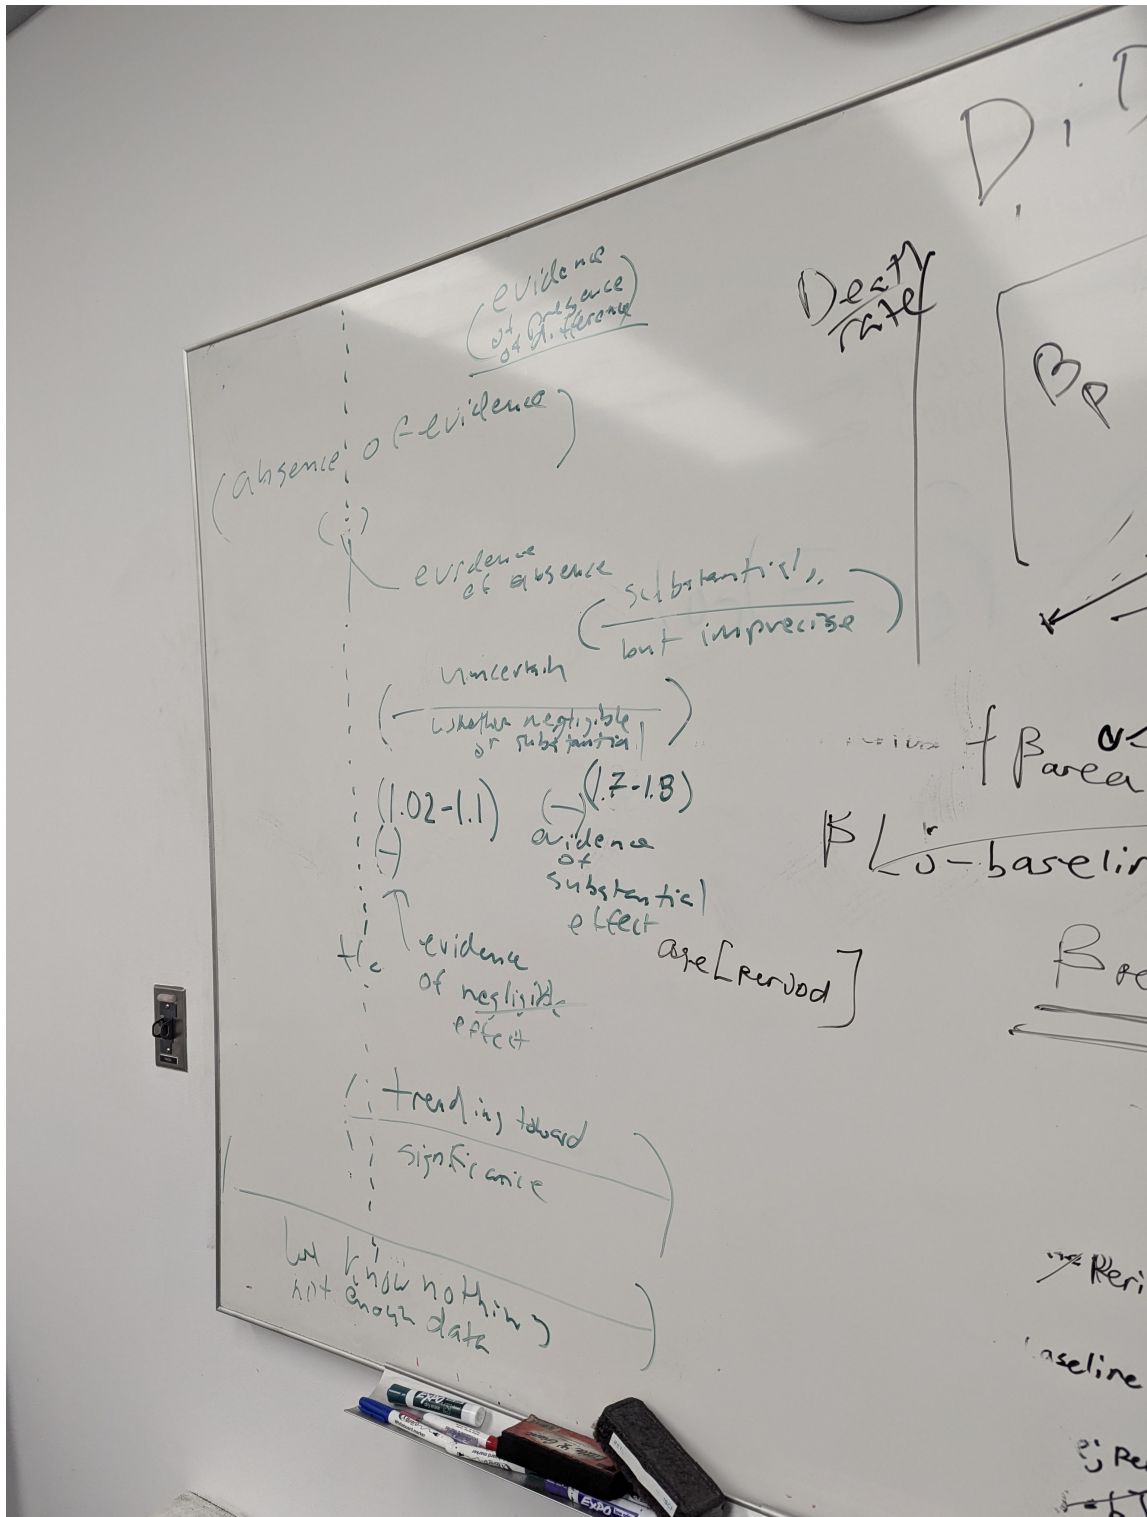 evidence
of presence
of difference
(absence of evidence)
evidence
of absence
substantial,
but imprecise
uncertain
whether negligible
or substantial
(1.02-1.1)
(1.7-1.8)
evidence
of
substantial
effect
evidence
of negligible
effect
trending toward
significance
know nothing
not enough data
Death
rate
D
β
+ β area
-baselin
age[period]
β
Peri
aseline
EXPO
EXPO